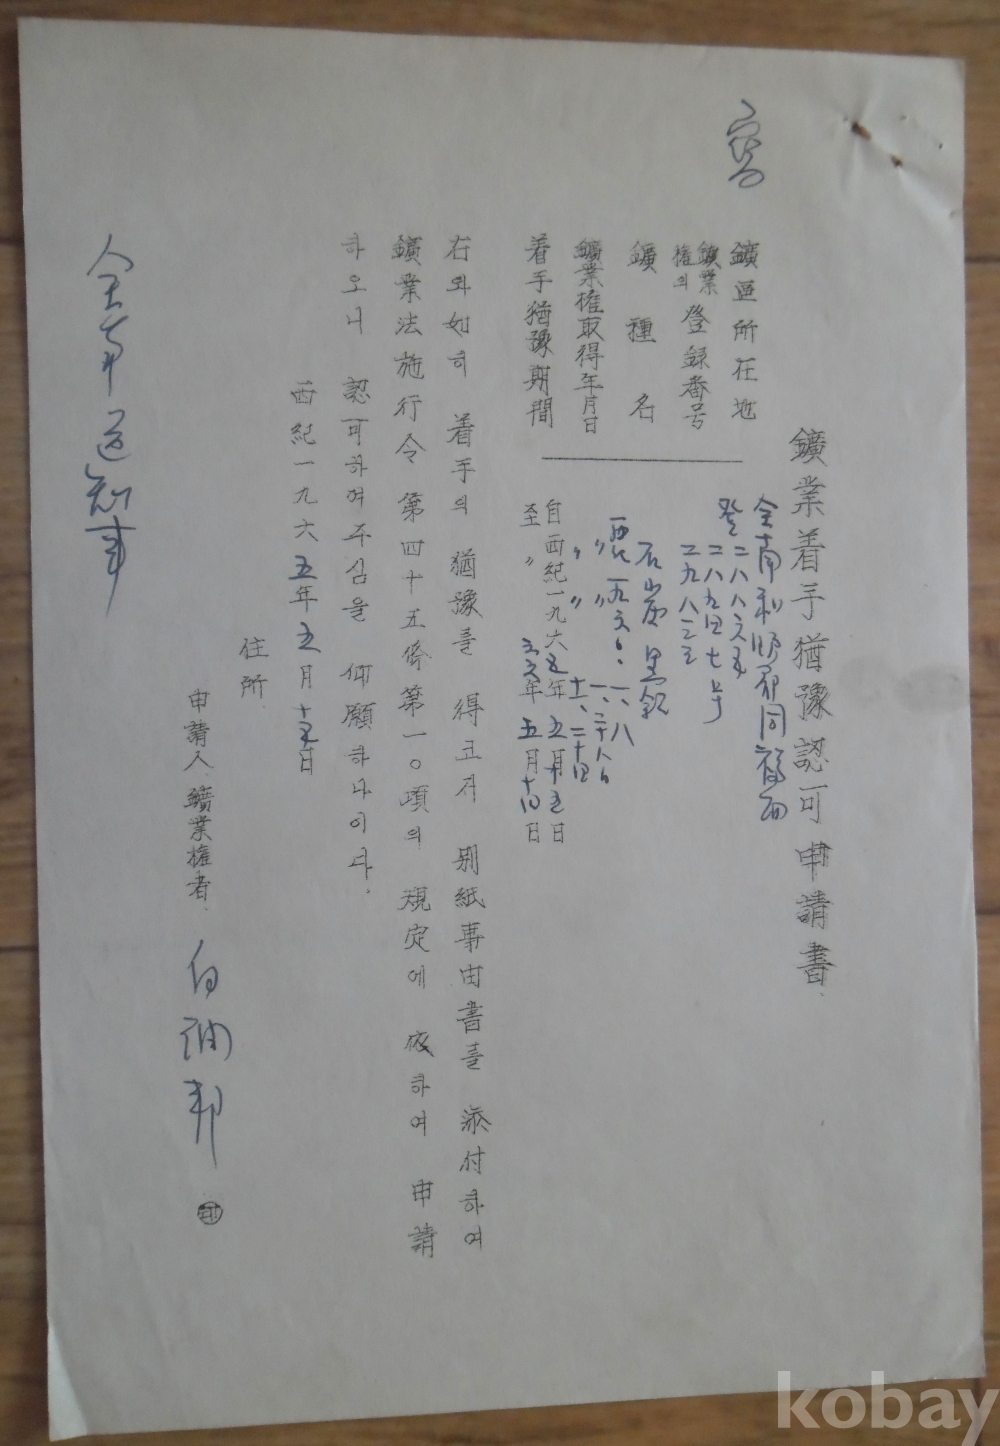 寫
鑛業着手猶豫認可申請書
鑛區所在地 全南和順郡同福面
鑛業權의 登錄番号 登 二八八六五
二八九四七号
二九八三三
鑛種名 石炭 黑鉛
鑛業權取得年月日 西紀 一九六〇、一、八
〃 〃 一、二十八日
〃 〃 十一、二十四
着手猶豫期間
自西紀一九六五年五月十五日
至 〃 六六年五月十四日
右와如히 着手의 猶豫를 得코저 別紙事由書를 添付하여
鑛業法施行令 第四十五條第一〇項의 規定에 依하여 申請
하오니 認可하여주심을 仰願하나이다.
西紀一九六五年五月十五日
住所
申請人 鑛業權者 白 邦 印
全南道知事
kobay